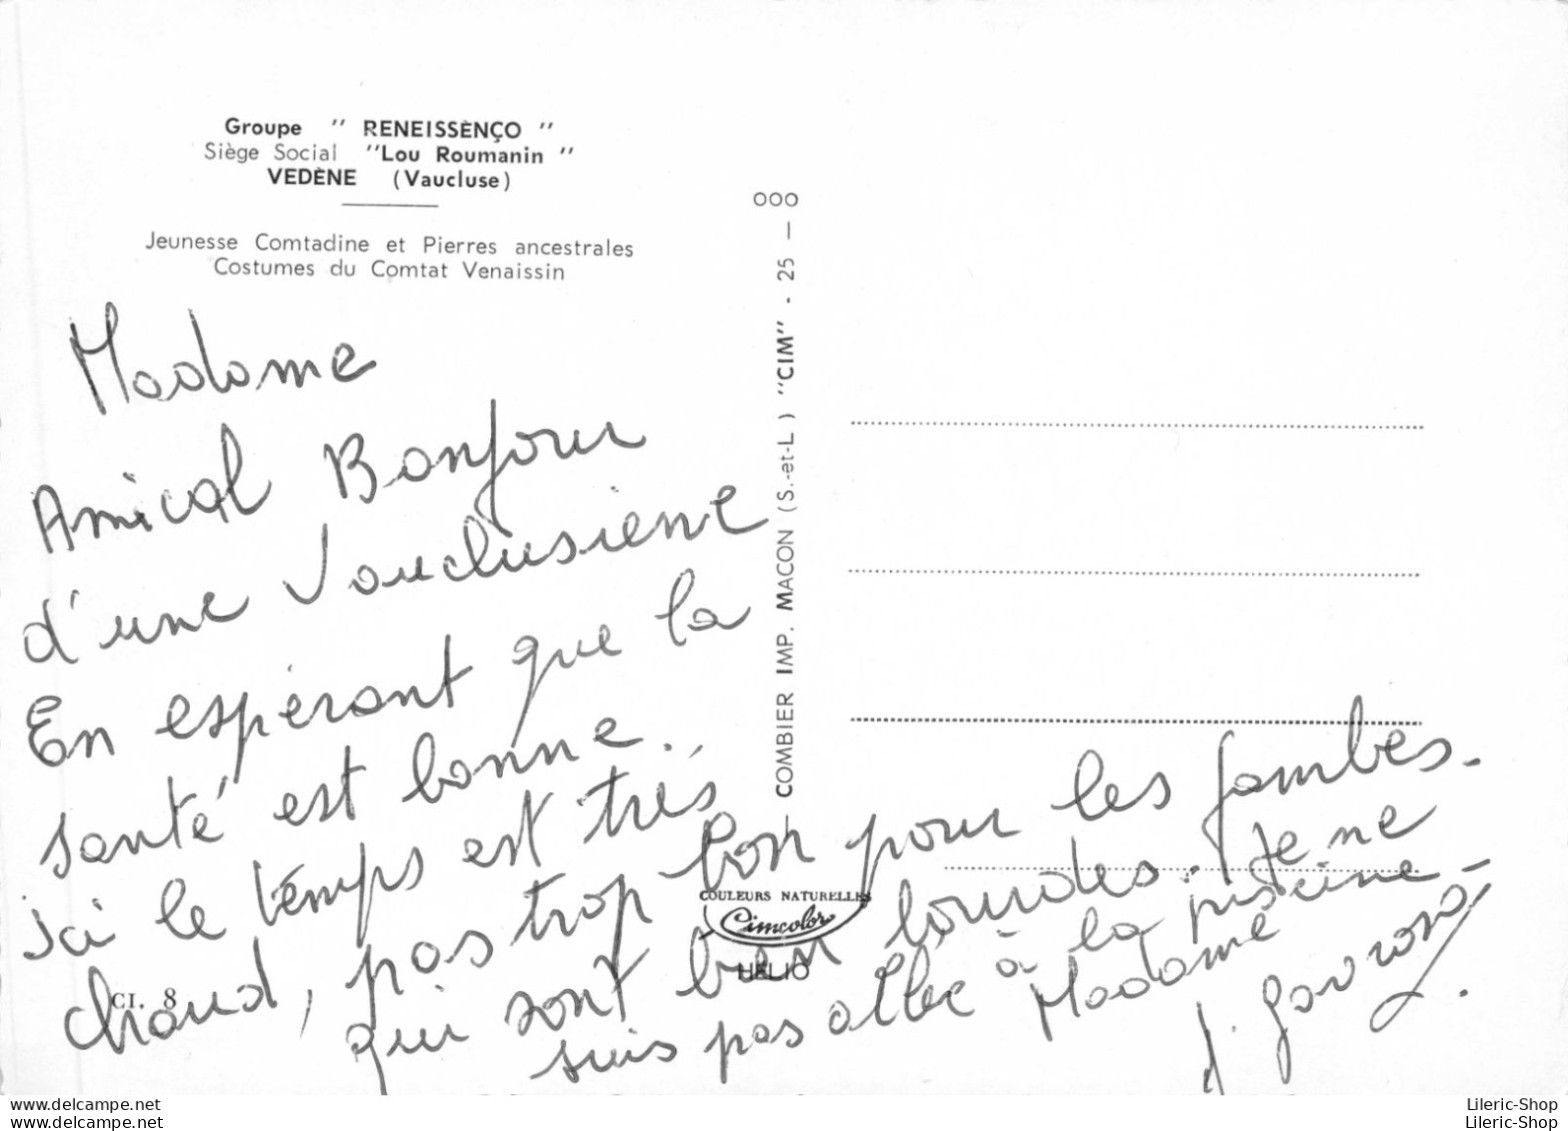 Groupe " RENEISSÈNÇO "
Siège Social "Lou Roumanin "
VEDÈNE (Vaucluse)
Jeunesse Comtadine et Pierres ancestrales
Costumes du Comtat Venaissin
Madame
Amical Bonjour
d'une Vauclusiene
En espérant que la
santé est bonne.
Ici le temps est très
chaud, pas trop bon pour les jambes.
qui sont bien lourdes. Je ne
suis pas allée à la piscine
Madame
J.
CI. 8
000
— COMBIER IMP. MACON (S.-et-L.) "CIM" - 25 —
COULEURS NATURELLES
Cimcolor
HÉLIO
Lileric-show.com
Lileric-show.com
Lileric-Shop
Lileric-Shop